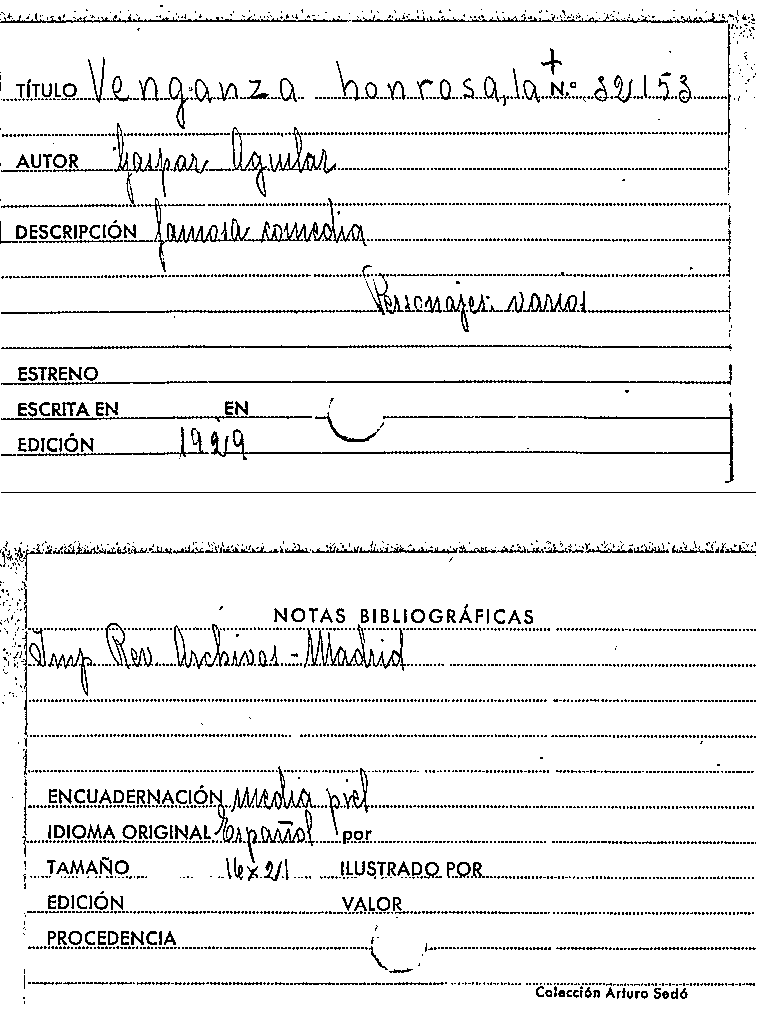 TÍTULO Venganza honrosa, la + N.º 32153
AUTOR Gaspar Aguilar
DESCRIPCIÓN famosa comedia
Personajes: varios
ESTRENO
ESCRITA EN EN
EDICIÓN 1929
NOTAS BIBLIOGRÁFICAS
Imp Rev. Archivos - Madrid
ENCUADERNACIÓN media piel
IDIOMA ORIGINAL Español por
TAMAÑO 16x21 ILUSTRADO POR
EDICIÓN VALOR
PROCEDENCIA
Colección Arturo Sedó